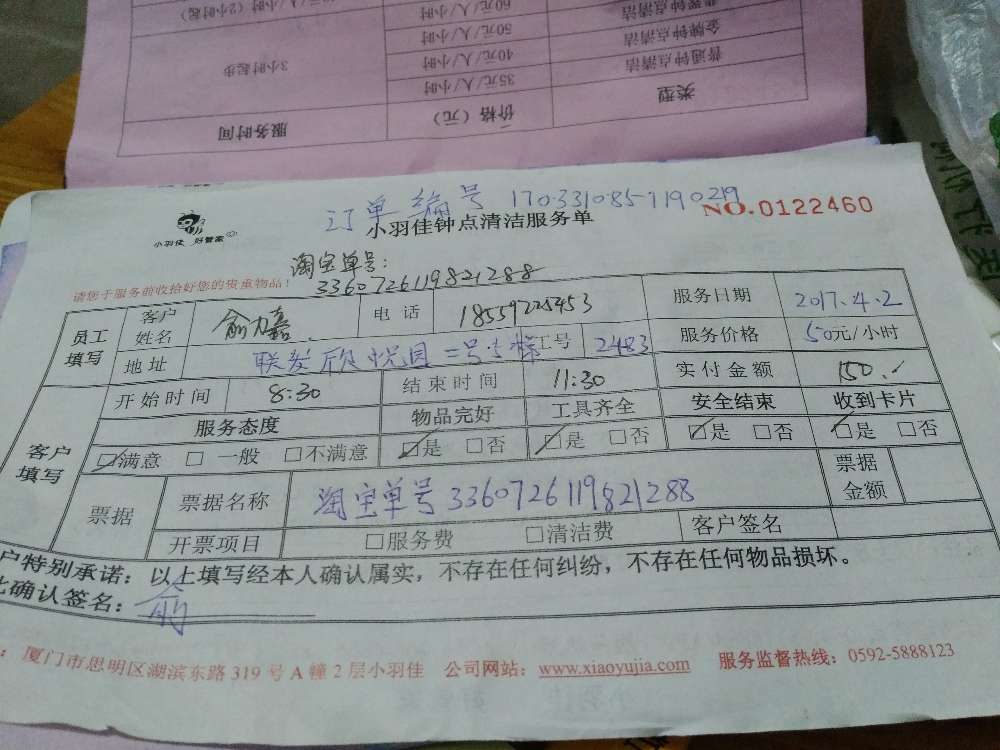 服务时间 价格（元） 类型
3小时起步 35元/人/小时 普通钟点清洁
40元/人/小时 金牌钟点清洁
50元/人/小时
60元/人/小时
订单编号 1703310857190219
NO.0122460
小羽佳 好管家
小羽佳钟点清洁服务单
淘宝单号：
3360726119821288
请您于服务前收拾好您的贵重物品！
员工填写 客户姓名 俞力嘉 电话 18559725453 服务日期 2017.4.2
地址 联发欣悦园二号5梯 工号 2483 服务价格 50元/小时
客户填写 开始时间 8:30 结束时间 11:30 实付金额 150.-
服务态度 物品完好 工具齐全 安全结束 收到卡片
☑满意 □一般 □不满意 ☑是 □否 ☑是 □否 ☑是 □否 ☑是 □否
票据 票据名称 淘宝单号3360726119821288 票据金额
开票项目 □服务费 □清洁费 客户签名
户特别承诺：以上填写经本人确认属实，不存在任何纠纷，不存在任何物品损坏。
此确认签名：俞
：厦门市思明区湖滨东路319号A幢2层小羽佳 公司网站：www.xiaoyujia.com 服务监督热线：0592-5888123